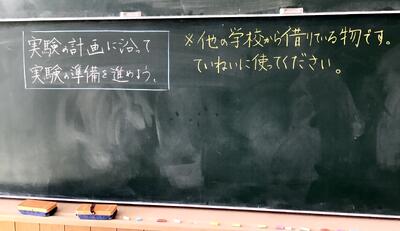 実験の計画に沿って
実験の準備を進めよう。
※他の学校から借りている物です。
ていねいに使ってください。